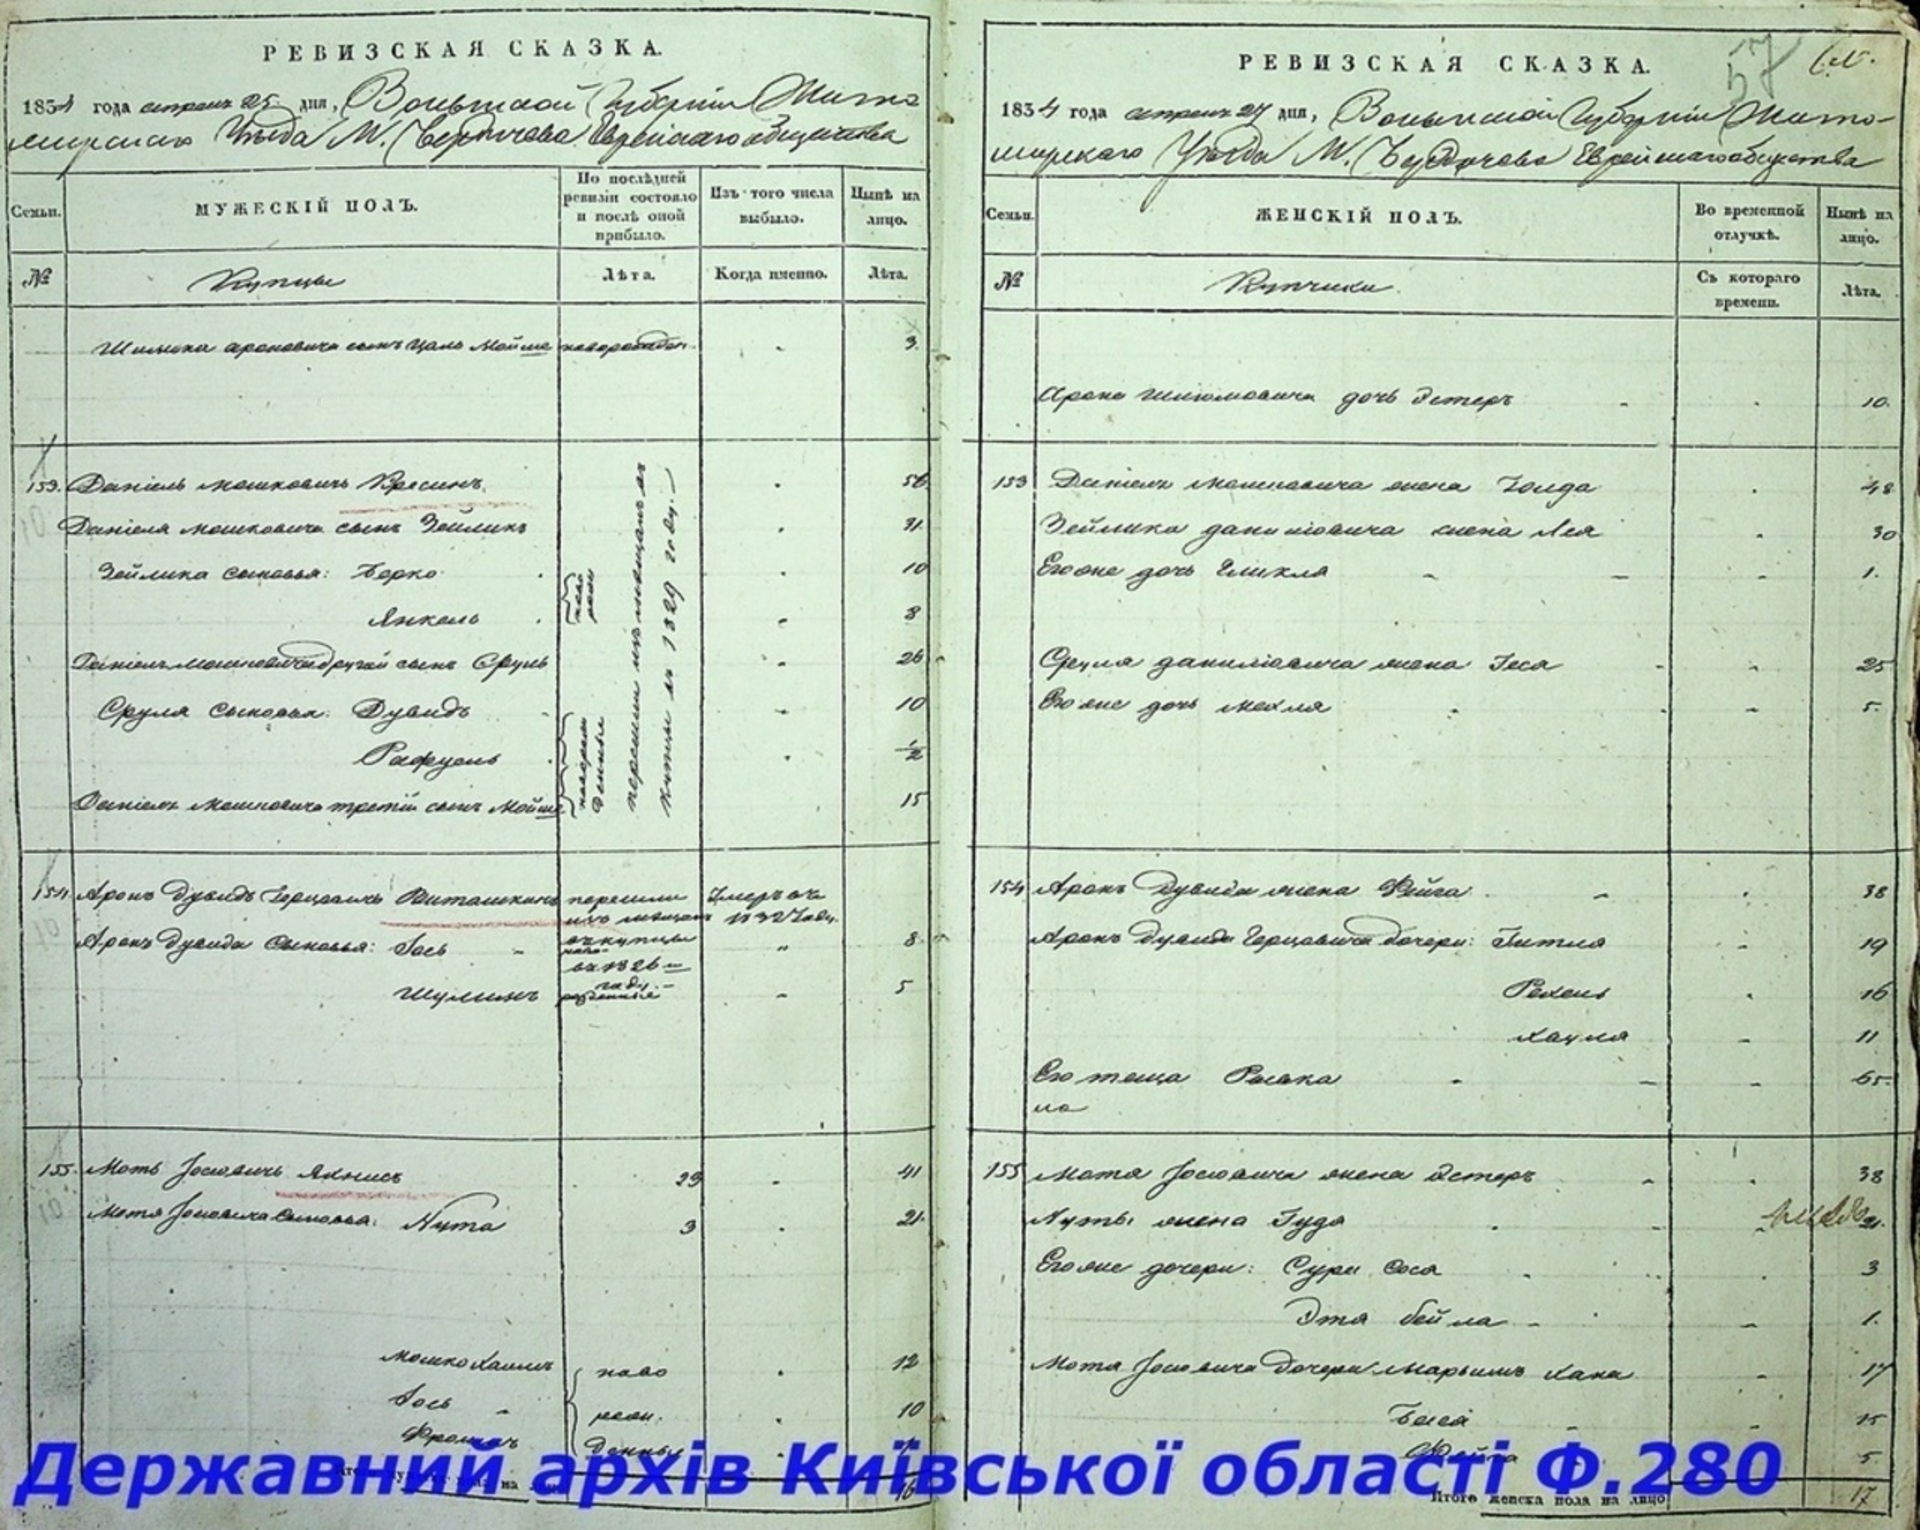 РЕВИЗСКАЯ СКАЗКА.
1834 года апреля 25 дня, Волынской Губернии Жито
мирскаго Уѣзда М. Бердичева Еврейскаго общества
Семьи.
МУЖЕСКІЙ ПОЛЪ.
По послѣдней ревизіи состояло и послѣ оной прибыло.
Изъ того числа выбыло.
Нынѣ на лицо.
№
Купцы
Лѣта.
Когда именно.
Лѣта.
Шлиома ароновича сынъ Цаль Мойше новорожден. 3.
153. Даніель мошковичъ Кресинъ 56
Даніеля мошковича сынъ Зейликъ 31.
Зейлика сыновья: Берко 10
Янкель 8
ново рож
Даніеля Мошковича другой сынъ Сруль 26
Сруля сыновья: Дувидъ 10
Рафуель 1/2
Даніеля мошковича третій сынъ Мойше 15
новорож денные
перешли изъ мещанъ въ
купцы въ 1829 году.
154 Аронъ Дувидъ Герцовичъ Виташкинъ перешли Умеръ въ
изъ мещанъ 1832 году.
Аронъ Дувида Сыновья: Iось въ купцы 8
ново
въ 1826 м
году.
Шулимъ рожденные 5
155. Моть Iосіовичъ Яхнисъ 29 41
Мотя Iосіовича Сыновья: Нута 3 21.
Мошко Хаимъ ново 12
Iось рож 10
Фроимъ денные
16
РЕВИЗСКАЯ СКАЗКА.
57
1834 года апреля 27 дня, Волынской Губерніи Жито-
мирскаго Уѣзда М. Бердичева Еврейскаго общества
Семьи.
ЖЕНСКІЙ ПОЛЪ.
Во временной отлучкѣ.
Нынѣ на лицо.
№
Купчихи.
Съ котораго времени.
Лѣта.
Арона Шлиомовича дочь Эстеръ 10.
153 Даніеля Мошковича жена Голда 48
Зейлика даниліовича жена Лея 30
Его же дочь Гликля 1.
Сруля даниліовича жена Геся 25
Его же дочь Махля 5.
154 Аронъ Дувида жена Фейга 38
Аронъ Дувида Герцовича дочери: Гитля 19
Рехель 16
Хацля 11
Его теща Раська 65.
155 Мотя Iосіовича жена Эстеръ 38
Нуты жена Гуда 21.
Его же дочери: Сура Сося 3
Эта бейла 1.
Мотя Iосіовича Дочери Марьямъ Хана 17
Бася 15
Фейга 5
Итого женска пола на лицо 17
Державний архів Київської області Ф.280